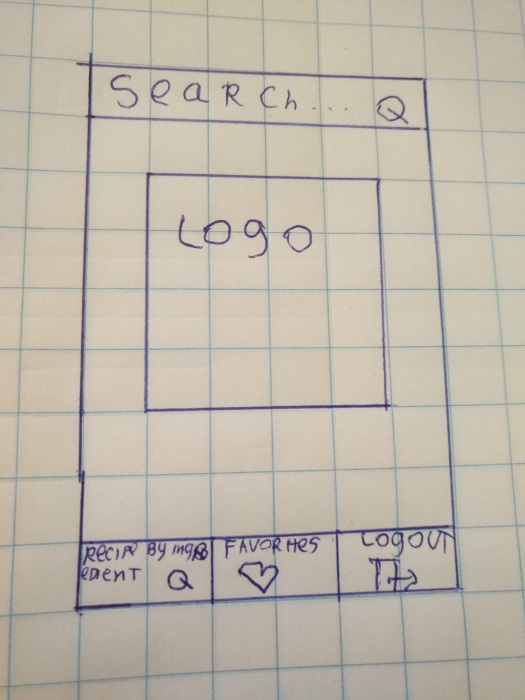 Search...
Logo
Recipe By ingr
edient
FAVORITES
LOGOUT